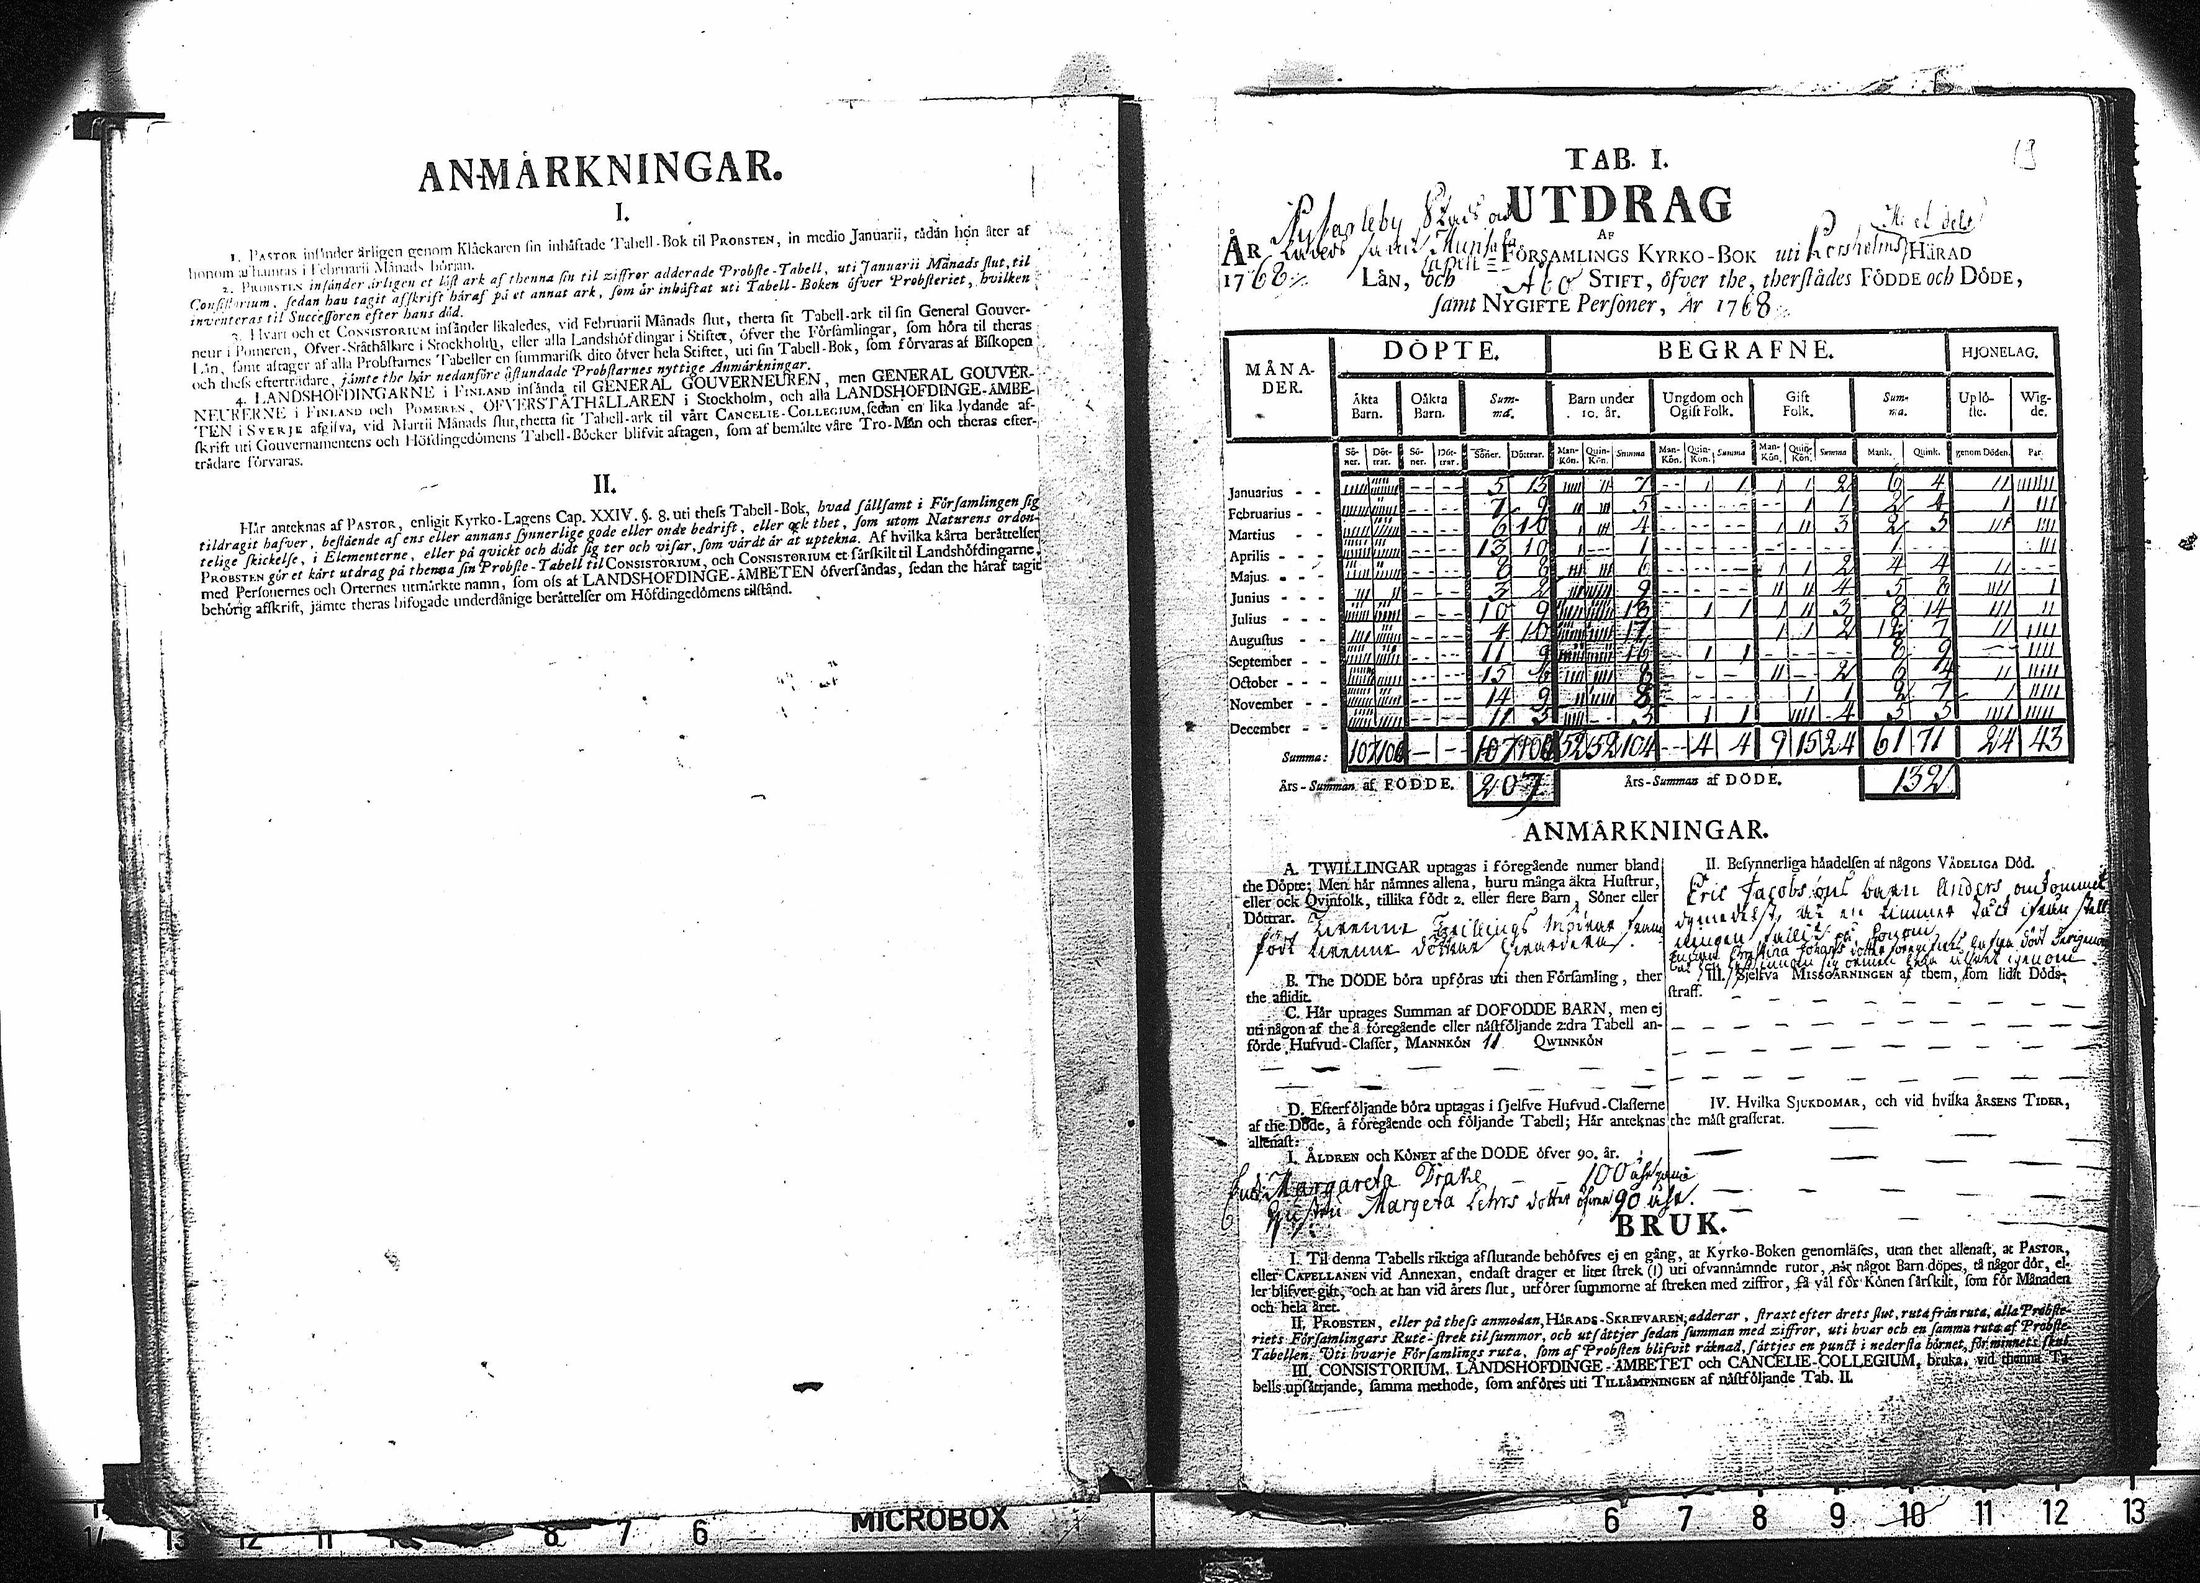 ANMÄRKNINGAR.
I.
1. PASTOR insänder årligen genom Klåckaren sin inhäftade Tabell-Bok til PROBSTEN, in medio Januarii, tådån hon åter af
honom afhämtas i Februarii Månads början.
2. PROBSTEN insänder årligen et löst ark af thenna sin til ziffror adderade Probste-Tabell, uti Januarii Månads slut, til
Consistorium, sedan han tagit afskrift häraf på et annat ark, som är inhäftat uti Tabell-Boken öfver Probsteriet, hvilken
inventeras til Successoren efter hans död.
3. Hvart och et CONSISTORIUM insänder likaledes, vid Februarii Månads slut, thetta sit Tabell-ark til sin General Gouver-
neur i Pomeren, Öfver-Ståthållare i Stockholm, eller alla Landshöfdingar i Stiftet, öfver the Församlingar, som höra til theras
Län, samt aftager af alla Probstarnes Tabeller en summarisk dito öfver hela Stiftet, uti sin Tabell-Bok, som förvaras af Biskopen
och thess efterträdare, jämte the här nedanföre åstundade Probstarnes nyttige Anmärkningar.
4. LANDSHÖFDINGARNE i FINLAND insända til GENERAL GOUVERNEUREN, men GENERAL GOUVER-
NEURERNE i FINLAND och POMEREN, ÖFVERSTÅTHÅLLAREN i Stockholm, och alla LANDSHÖFDINGE-ÄMBE-
TEN i SVERJE afgifva, vid Martii Månads slut, thetta sit Tabell-ark til vårt CANCELIE-COLLEGIUM, sedan en lika lydande af-
skrift uti Gouvernamentens och Höfdingedömens Tabell-Böcker blifvit aftagen, som af bemälte våre Tro-Män och theras efter-
trädare förvaras.
II.
Här anteknas af PASTOR, enligit Kyrko-Lagens Cap. XXIV. §. 8. uti thess Tabell-Bok, hvad sällsamt i Församlingen sig
tildragit hafver, bestående af ens eller annans synnerlige gode eller onde bedrift, eller ock thet, som utom Naturens ordon-
telige skickelse, i Elementerne, eller på qvickt och dödt sig ter och visar, som värdt är at uptekna. Af hvilka kårta berättelser
PROBSTEN gör et kårt utdrag på thenna sin Probste-Tabell til CONSISTORIUM, och CONSISTORIUM et särskilt til Landshöfdingarne,
med Personernes och Orternes utmärkte namn, som oss af LANDSHÖFDINGE-ÄMBETEN öfversändas, sedan the häraf tagit
behörig afskrift, jämte theras bifogade underdånige berättelser om Höfdingedömens tilstånd.
13
TAB. I.
UTDRAG
AF
ÅR Nykarleby Stads
samt FÖRSAMLINGS KYRKO-BOK uti Korsholms HÄRAD
1768 LÄN, och Åbo STIFT, öfver the, therstädes FÖDDE och DÖDE,
samt NYGIFTE Personer, År 1768
MÅNA-DER. DÖPTE. BEGRAFNE. HJONELAG.
Äkta Barn. Oäkta Barn. Summa. Barn under 10. år. Ungdom och Ogift Folk. Gift Folk. Summa. Uplöste. Wigde.
Söner. Döttrar. Söner. Döttrar. Söner. Döttrar. Man-Kön. Quin-Kön. Summa Man-Kön. Quin-Kön. Summa Man-Kön. Quin-Kön. Summa Mank. Quink. genom Döden. Par.
Januarius - - 5 13 7 1 2 6 4
Februarius - - 7 9 5 1 2 4
Martius - - 6 10 4 3 2 5
Aprilis - - 13 10 1 1
Majus - - 8 8 6 2 4 4
Junius - - 3 2 9 4 5 8
Julius - - 10 9 18 1 3 8 14
Augustus - - 4 10 17 2 12 7
September - - 11 9 16 1 8 9
October - - 15 6 8 2 6 4
November - - 14 9 8 1 2 7
December - - 11 5 5 1 4 5 5
Summa: 107 100 - - 107 100 52 52 104 - 4 4 9 15 24 61 71 24 43
Års-Summan af FÖDDE. 207 Års-Summan af DÖDE. 132
ANMÄRKNINGAR.
A. TWILLINGAR uptagas i föregående numer bland
the Döpte; Men här nämnes allena, huru många äkta Hustrur,
eller ock Qvinfolk, tillika födt 2. eller flere Barn, Söner eller
Döttrar.
födt döttrar
B. The DÖDE böra upföras uti then Församling, ther
the aflidit.
C. Här uptages Summan af DÖFÖDDE BARN, men ej
uti någon af the å föregående eller nästföljande 2:dra Tabell an-
förde Hufvud-Classer, MANNKÖN 11 QWINNKÖN
D. Efterföljande böra uptagas i sjelfve Hufvud-Classerne
af the Döde, å föregående och följande Tabell; Här anteknas
allenast:
I. ÅLDREN och KÖNET af the DÖDE öfver 90. år.
Margareta Drake - - 100
Margeta dotter 90 åhr.
II. Besynnerliga händelsen af någons VÅDELIGA Död.
Eric Jacobssons barn Anders omkommet
III. Sjelfva MISSGÄRNINGEN af them, som lidit Döds-
straff.
IV. Hvilka SJUKDOMAR, och vid hvilka ÅRSENS TIDER,
the mäst grasserat.
BRUK.
I. Til denna Tabells riktiga afslutande behöfves ej en gång, at Kyrko-Boken genomläses, utan thet allenast, at PASTOR,
eller CAPELLANEN vid Annexan, endast drager et litet strek (I) uti ofvannämnde rutor, när något Barn döpes, tå någor dör, el-
ler blifver gift, och at han vid årets slut, utförer summorne af streken med ziffror, så väl för Könen särskilt, som för Månaden
och hela året.
II. PROBSTEN, eller på thess anmodan, HÄRADS-SKRIFVAREN, adderar, straxt efter årets slut, ruta från ruta, alla Probste-
riets Församlingars Rute-strek til summor, och utsättjer sedan summan med ziffror, uti hvar och en samma ruta af Probste-
Tabellen. Uti hvarje Församlings ruta, som af Probsten blifvit räknad, sättjes en punct i nedersta hörnet, för minnets skul.
III. CONSISTORIUM, LANDSHÖFDINGE-ÄMBETET och CANCELIE-COLLEGIUM, bruka, vid thenna Ta-
bells upsättjande, samma methode, som anföres uti TILLÄMPNINGEN af nästföljande Tab. II.
MICROBOX
14 13 12 11 8 7 6 6 7 8 9 10 11 12 13